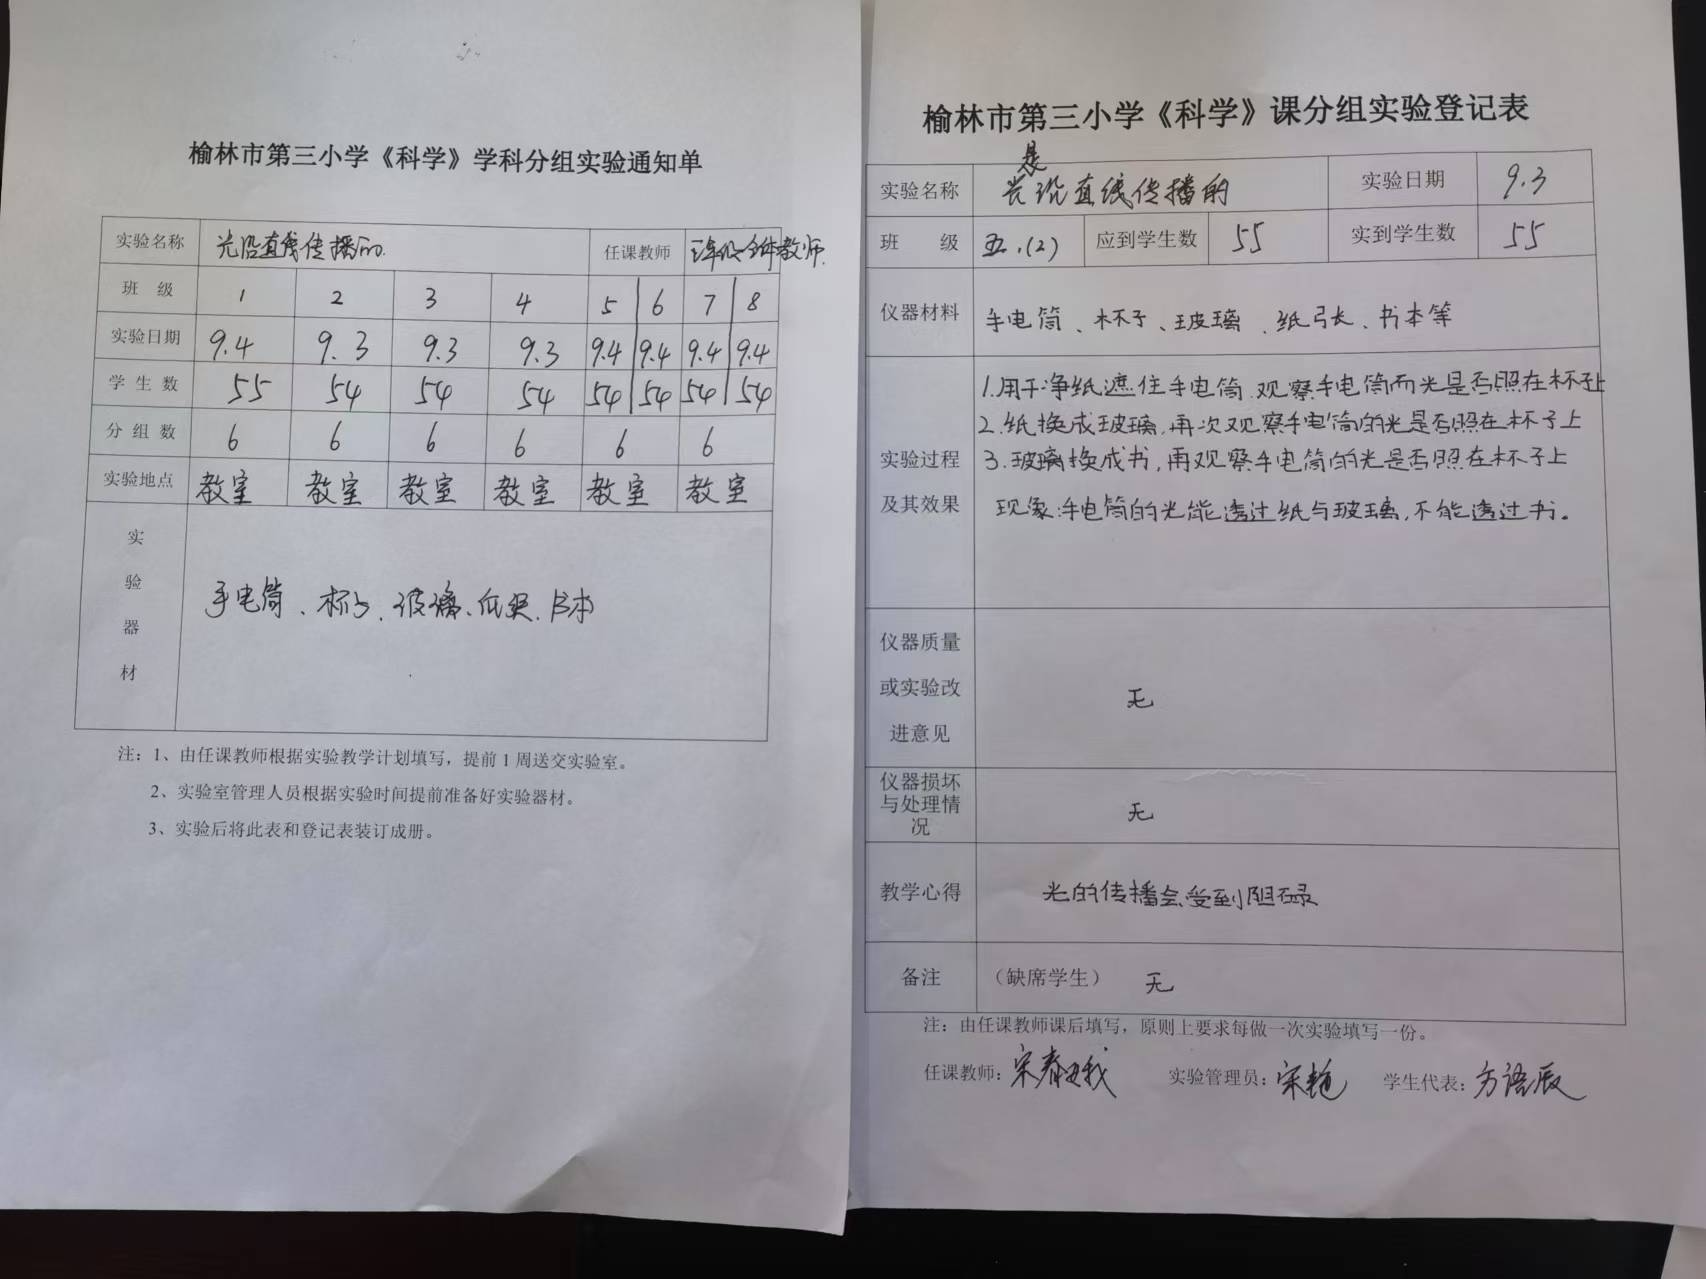 榆林市第三小学《科学》学科分组实验通知单
实验名称 光沿直线传播的 任课教师 全体教师
班 级 1 2 3 4 5 6 7 8
实验日期 9.4 9.3 9.3 9.3 9.4 9.4 9.4 9.4
学 生 数 55 54 54 54 54 54 54 54
分 组 数 6 6 6 6 6 6
实验地点 教室 教室 教室 教室 教室 教室
实
验
器
材
手电筒、杯子、玻璃、纸张、书本
注:1、由任课教师根据实验教学计划填写,提前1周送交实验室。
2、实验室管理人员根据实验时间提前准备好实验器材。
3、实验后将此表和登记表装订成册。
榆林市第三小学《科学》课分组实验登记表
是
实验名称 光沿直线传播的 实验日期 9.3
班 级 五.(2) 应到学生数 55 实到学生数 55
仪器材料 手电筒、杯子、玻璃、纸张、书本等
实验过程
及其效果
1.用干净纸遮住手电筒,观察手电筒而光是否照在杯子上
2.纸换成玻璃,再次观察手电筒的光是否照在杯子上
3.玻璃换成书,再观察手电筒的光是否照在杯子上
现象:手电筒的光能透过纸与玻璃,不能透过书。
仪器质量
或实验改
进意见
无
仪器损坏
与处理情
况
无
教学心得 光的传播会受到阻碍
备注 (缺席学生) 无
注:由任课教师课后填写,原则上要求每做一次实验填写一份。
任课教师:宋春娥 实验管理员:宋艳 学生代表:方语辰